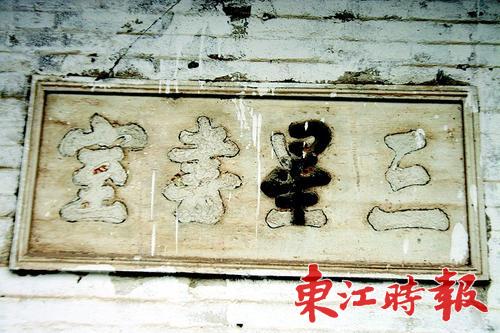 三星書室
東江時報